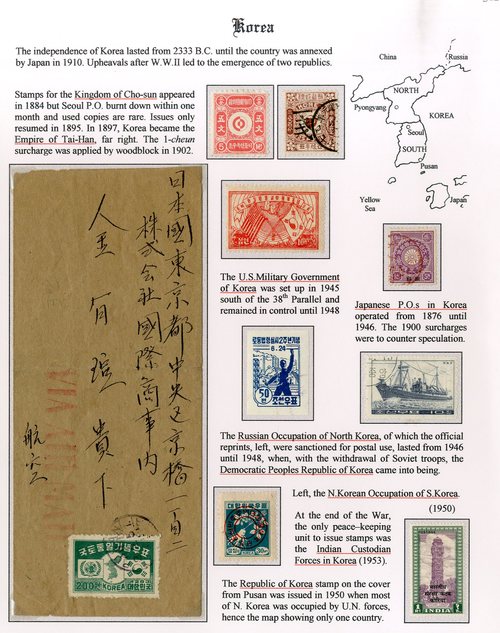 Korea
The independence of Korea lasted from 2333 B.C. until the country was annexed
by Japan in 1910. Upheavals after W.W.II led to the emergence of two republics.
Stamps for the Kingdom of Cho-sun appeared
in 1884 but Seoul P.O. burnt down within one
month and used copies are rare. Issues only
resumed in 1895. In 1897, Korea became the
Empire of Tai-Han, far right. The 1-cheun
surcharge was applied by woodblock in 1902.
China
Russia
NORTH
Pyongyang
KOREA
Seoul
SOUTH
Pusan
Yellow
Sea
Japan
日本國東京都中央区京橋一ノ一
株式会社國際商事内
貴下
航空
VIA
국토통일기념우표
200
KOREA
The U.S.Military Government
of Korea was set up in 1945
south of the 38th Parallel and
remained in control until 1948
Japanese P.O.s in Korea
operated from 1876 until
1946. The 1900 surcharges
were to counter speculation.
6.24
50
조선우표
The Russian Occupation of North Korea, of which the official
reprints, left, were sanctioned for postal use, lasted from 1946
until 1948, when, with the withdrawal of Soviet troops, the
Democratic Peoples Republic of Korea came into being.
Left, the N.Korean Occupation of S.Korea.
(1950)
At the end of the War,
the only peace-keeping
unit to issue stamps was
the Indian Custodian
Forces in Korea (1953).
INDIA
The Republic of Korea stamp on the cover
from Pusan was issued in 1950 when most
of N. Korea was occupied by U.N. forces,
hence the map showing only one country.